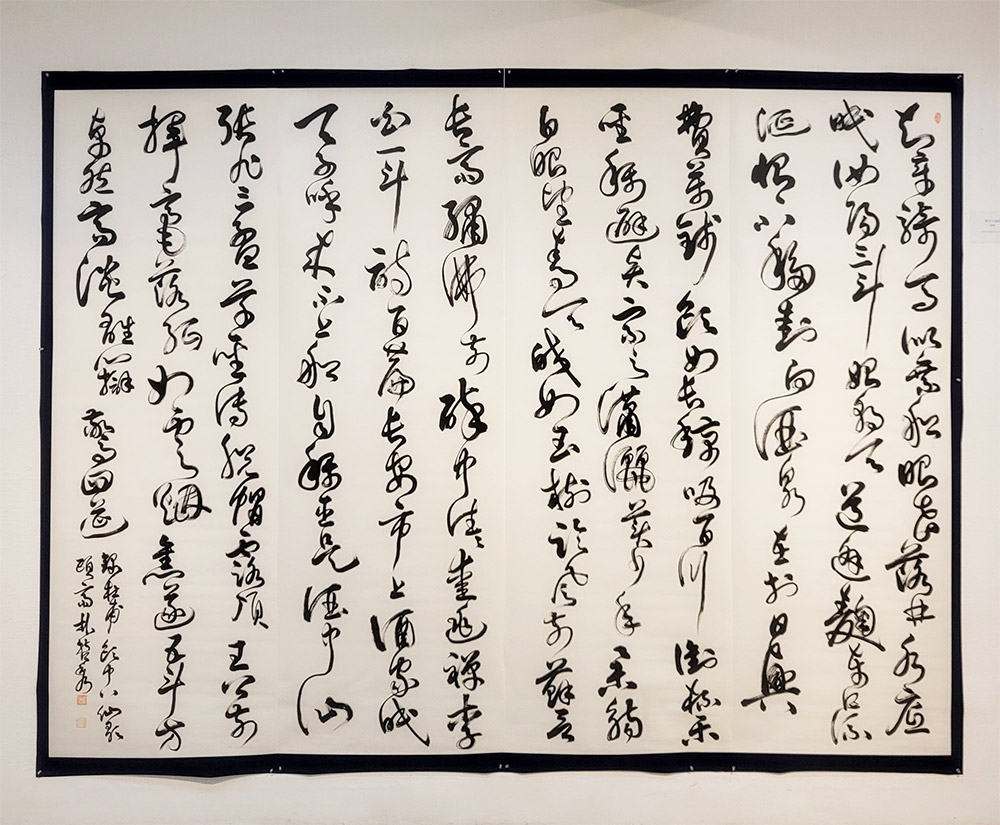 知章騎馬似乘船眼花落井水底
眠汝陽三斗始朝天道逢麴車口流
涎恨不移封向酒泉左相日興
費萬錢飲如長鯨吸百川銜杯樂
聖稱避賢宗之瀟灑美少年舉觴
白眼望青天皎如玉樹臨風前蘇晉
長齋繡佛前醉中往往愛逃禪李
白一斗詩百篇長安市上酒家眠
天子呼來不上船自稱臣是酒中仙
張旭三盃草聖傳脫帽露頂王公前
揮毫落紙如雲烟焦遂五斗方
卓然高談雄辯驚四筵
錄杜甫飲中八仙歌